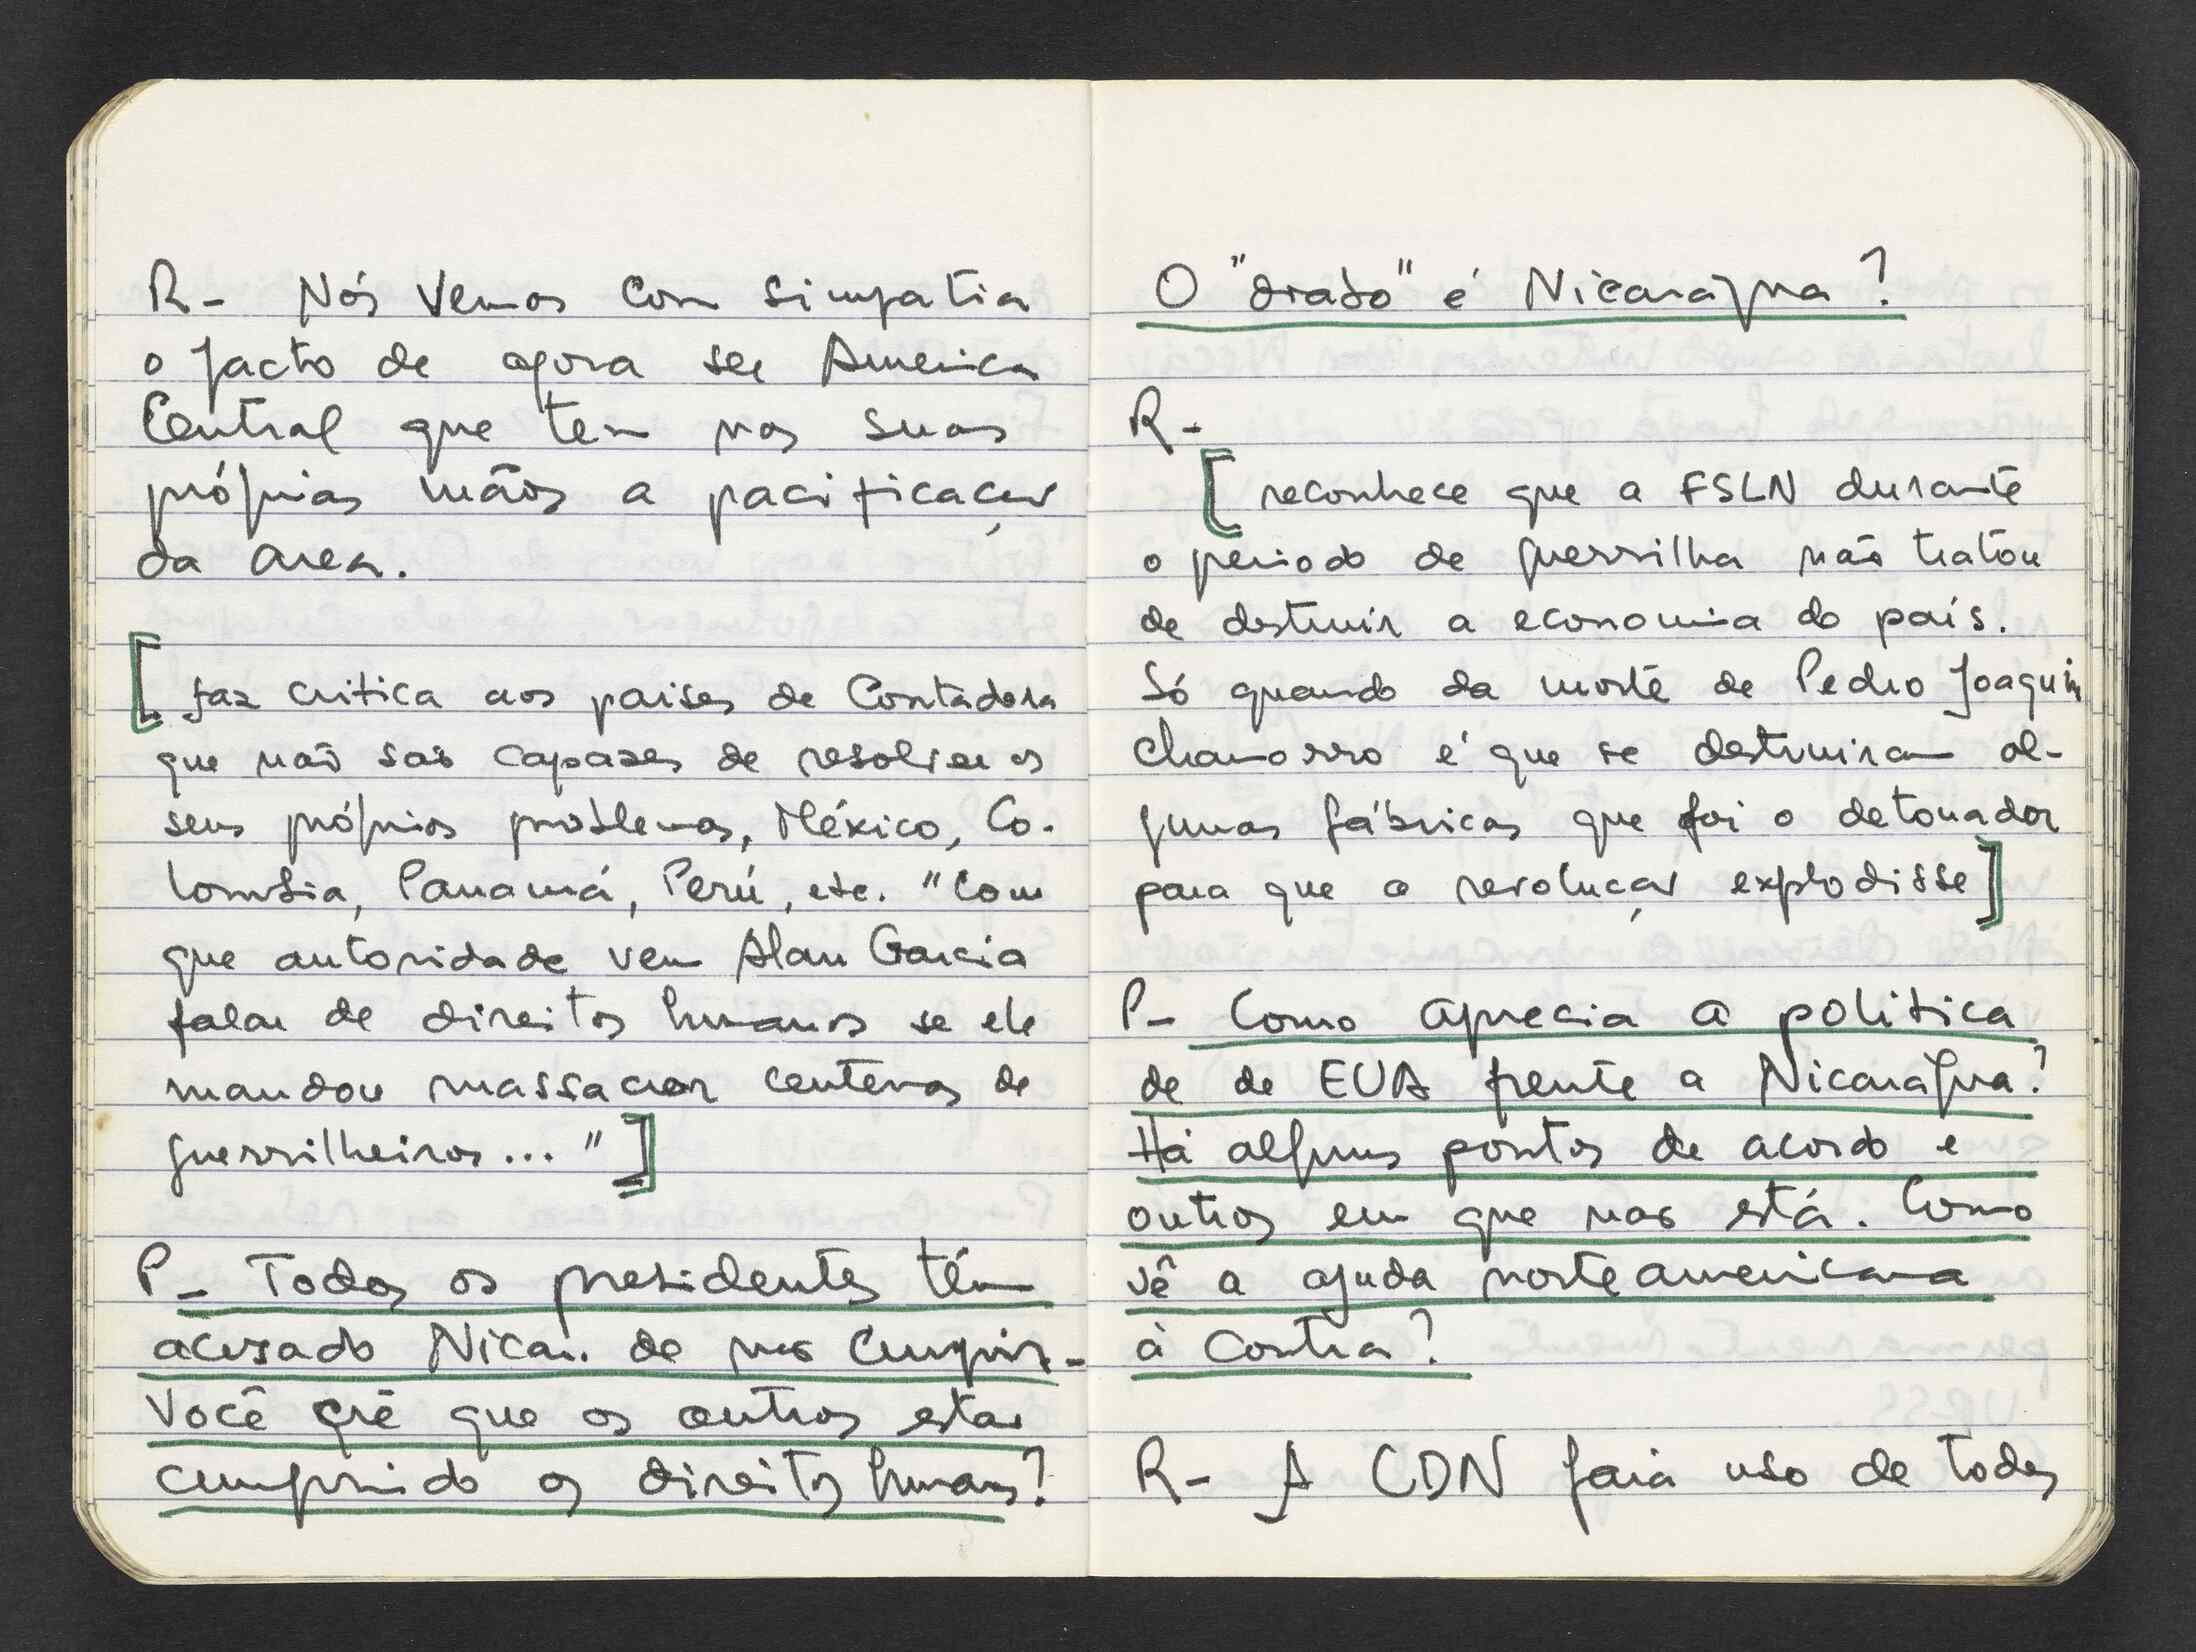 R- Nós vemos com simpatia
o facto de agora ser America
Central que tem nas suas
próprias mãos a pacificação
da area.
[faz critica aos paises de Contadora
que não são capazes de resolver os
seus próprios problemas, México, Co-
lombia, Panamá, Perú, etc. "Com
que autoridade vem Alan Garcia
falar de direitos humanos se ele
mandou massacrar centenas de
guerrilheiros..."]
P- Todos os presidentes têm
acusado Nicar. de não cumprir-
Você crê que os outros estão
cumprindo os direitos humanos?
O "drado" é Nicarágua?
R-
[reconhece que a FSLN durante
o periodo de guerrilha não tratou
de destruir a economia do país.
Só quando da morte de Pedro Joaquin
Chamorro é que se destruiram al-
gumas fábricas que foi o detonador
para que a revolução explodisse]
P- Como aprecia a politica
de de EUA frente a Nicarágua?
Há alguns pontos de acordo e
outros em que não está. Como
vê a ajuda norteamericana
à Contra?
R- A CDN fará uso de todos